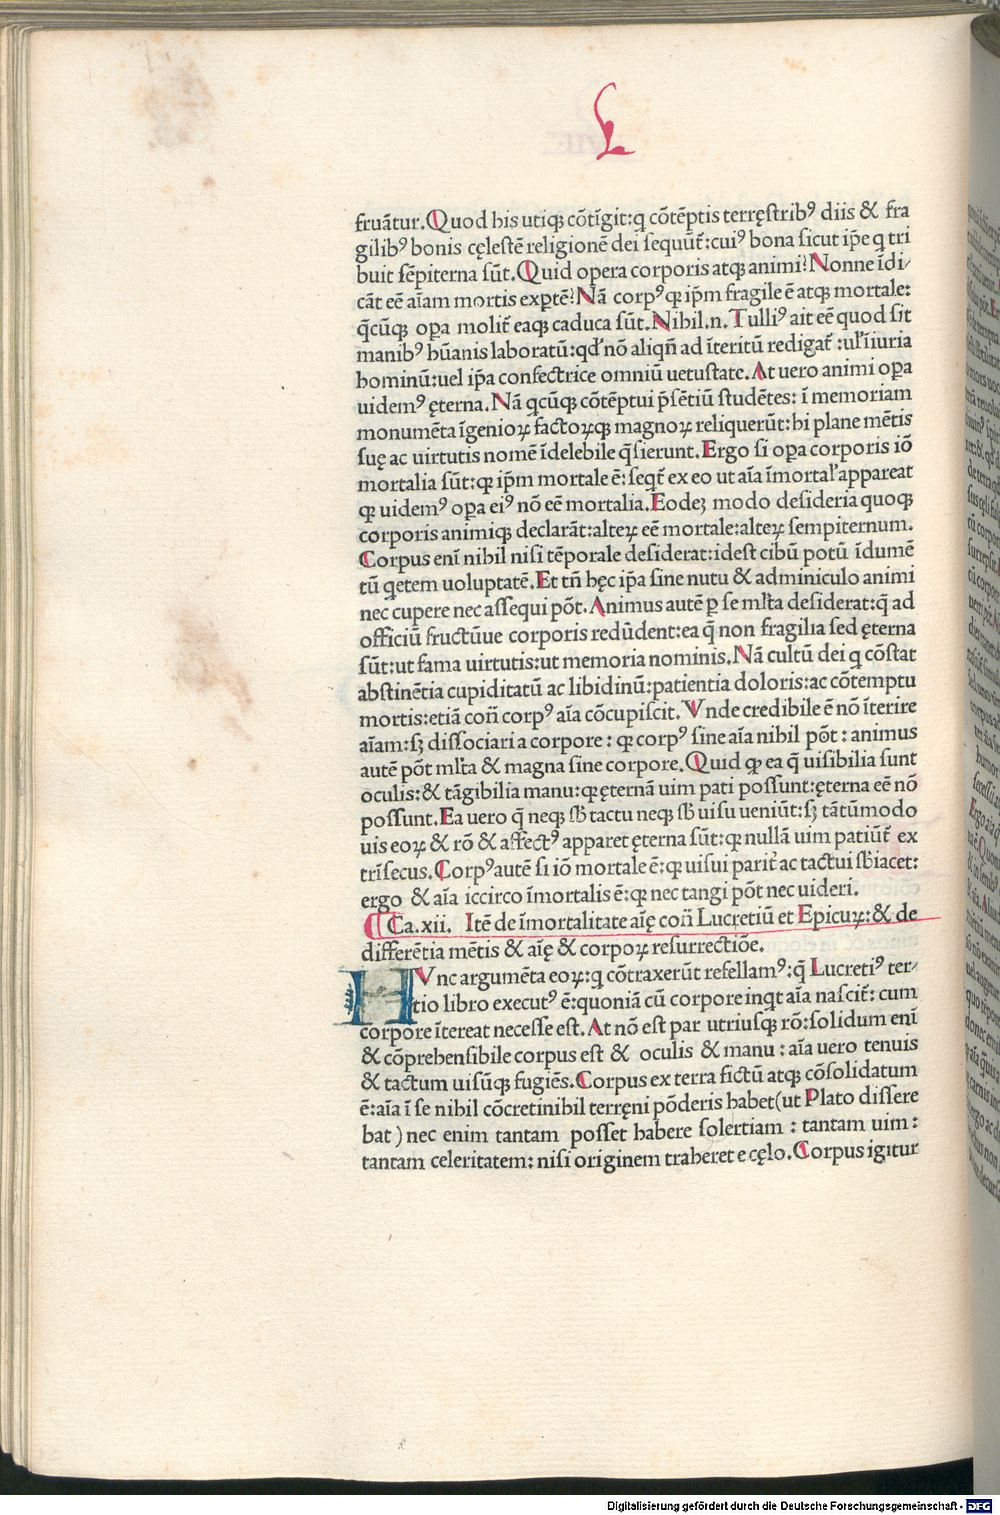 L
fruãtur.Quod his utiqꝫ cõtĩgit:q cõtẽptis terręstribꝰ diis & fra
gilibꝰ bonis cęlestẽ religionẽ dei sequũt̃:cuiꝰ bona sicut ip̃e q tri
buit sẽpiterna sũt.Quid opera corporis atqꝫ animi?Nonne ĩdi/
cãt eẽ aĩam mortis exptẽ?Nã corpꝰ qꝫ ip̃m fragile ẽ atqꝫ mortale:
q̃cũqꝫ oꝑa molit̃ eaqꝫ caduca sũt.Nihil.n.Tulliꝰ ait eẽ quod sit
manibꝰ hũanis laboratũ:qd' nõ aliqñ ad ĩteritũ redigat̃ :ul' ĩiuria
hominũ:uel ip̃a confectrice omniũ uetustate.At uero animi oꝑa
uidemꝰ ęterna.Nã qcũqꝫ cõtẽptui p̃sẽtiũ studẽtes: ĩ memoriam
monumẽta ĩgenioꝝ factoꝝqꝫ magnoꝝ reliquerũt:hi plane mẽtis
suę ac uirtutis nomẽ ĩdelebile q̃sierunt.Ergo si oꝑa corporis iõ
mortalia sũt:qꝫ ip̃m mortale ẽ: seqt̃ ex eo ut aĩa ĩmortal' appareat
qꝫ uidemꝰ oꝑa eiꝰ nõ eẽ mortalia.Eodeꝫ modo desideria quoqꝫ
corporis animiqꝫ declarãt:alteꝝ eẽ mortale:alteꝝ sempiternum.
Corpus enĩ nihil nisi tẽporale desiderat:idest cibũ potũ ĩdumẽ
tũ qetem uoluptatẽ.Et tñ hęc ip̃a sine nutu & adminiculo animi
nec cupere nec assequi põt.Animus autẽ ꝑ se ml̃ta desiderat:q̃ ad
officiũ fructũue corporis redũdent:ea q̃ non fragilia sed ęterna
sũt:ut fama uirtutis:ut memoria nominis.Nã cultũ dei q cõstat
abstinẽtia cupiditatũ ac libidinũ:patientia doloris:ac cõtemptu
mortis:etiã coñ corpꝰ aĩa cõcupiscit.Vnde credibile ẽ nõ ĩterire
aĩam:sꝫ dissociari a corpore : qꝫ corpꝰ sine aĩa nihil põt : animus
autẽ põt ml̃ta & magna sine corpore.Quid qꝫ ea q̃ uisibilia sunt
oculis:& tãgibilia manu:qꝫ ęternã uim pati possunt:ęterna eẽ nõ
possunt.Ea uero q̃ neqꝫ sb̃ tactu neqꝫ sb̃ uisu ueniũt:sꝫ tãtũmodo
uis eoꝝ & rõ & affectꝰ apparet ęterna sũt:qꝫ nullã uim patiũt̃ ex
trĩsecus.Corpꝰ autẽ si iõ mortale ẽ:qꝫ uisui parit̃ ac tactui sb̃iacet:
ergo & aĩa iccirco ĩmortalis ẽ:qꝫ nec tangi põt nec uideri.
Ca.xii. Itẽ de ĩmortalitate aĩę coñ Lucretiũ et Epicuꝝ:& de
differẽtia mẽtis & aĩę & corpoꝝ resurrectiõe.
HVnc argumẽta eoꝝ:q cõtraxerũt refellamꝰ:q̃ Lucretiꝰ ter/
tio libro executꝰ ẽ:quoniã cũ corpore inqt aĩa nascit̃: cum
corpore ĩtereat necesse est.At nõ est par utriusqꝫ rõ:solidum enĩ
& cõprehensibile corpus est & oculis & manu : aĩa uero tenuis
& tactum uisũqꝫ fugiẽs.Corpus ex terra fictũ atqꝫ cõsolidatum
ẽ:aĩa ĩ se nihil cõcretinihil terręni põderis habet(ut Plato dissere
bat)nec enim tantam posset habere solertiam : tantam uim :
tantam celeritatem: nisi originem traheret e cęlo.Corpus igitur
Digitalisierung gefördert durch die Deutsche Forschungsgemeinschaft - DFG